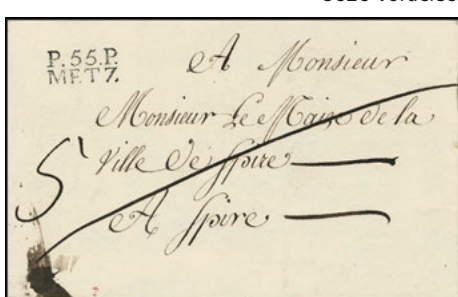 P.55.P.
METZ.
A Monsieur
Monsieur Le Maire de la
Ville De Spire
A Spire